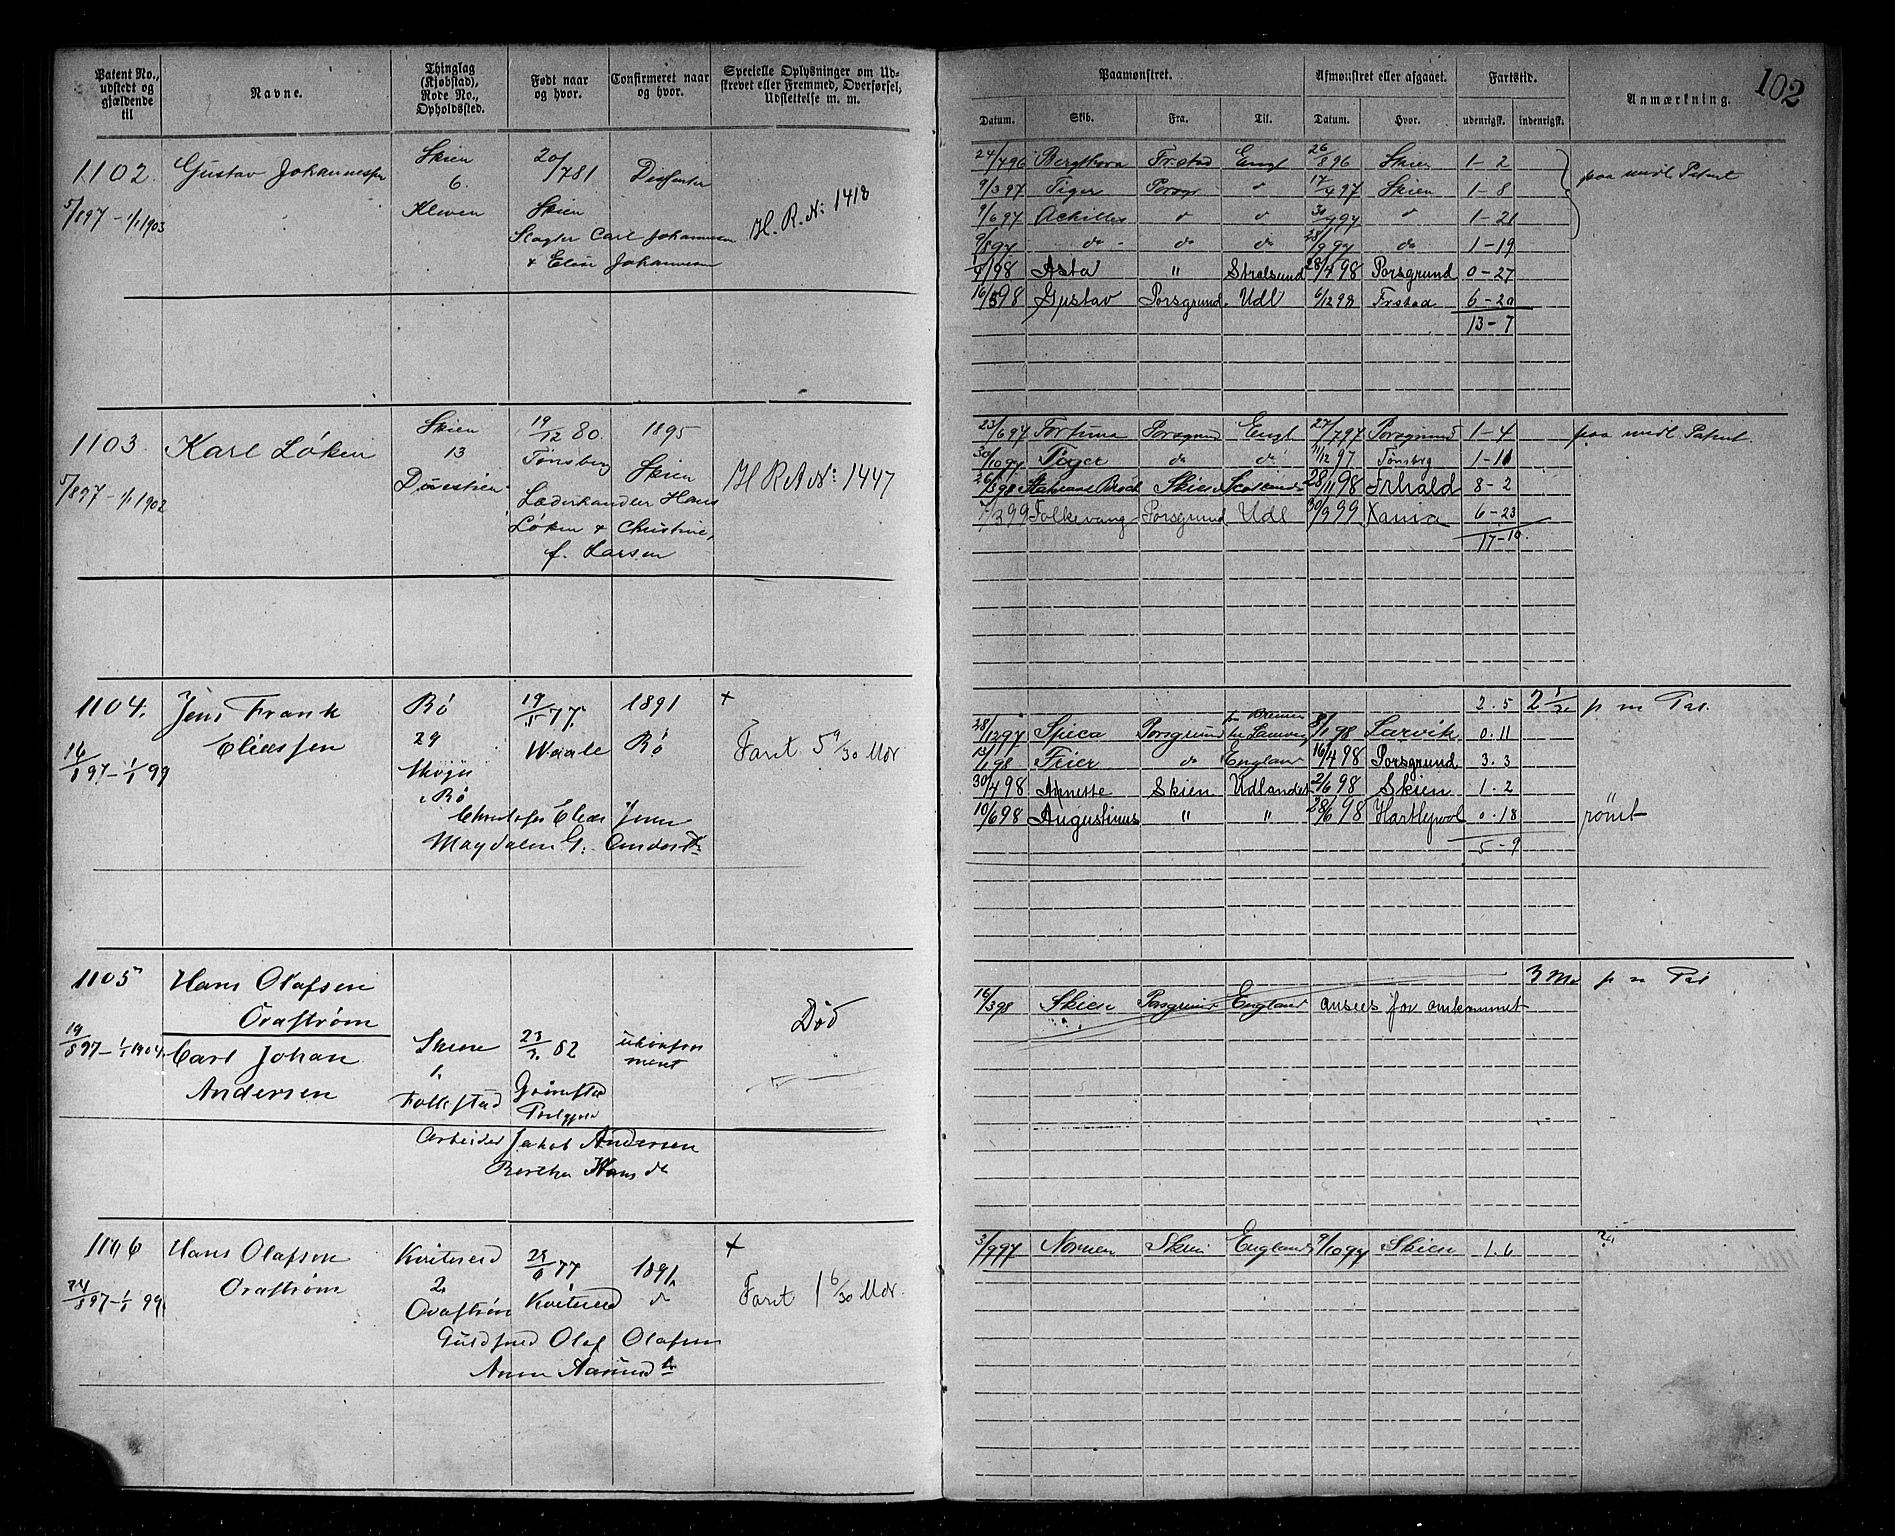 102
Patent No., udstedt og gjældende til
Navne.
Thinglag (Kjøbstad), Rode No., Opholdssted.
Født naar og hvor.
Confirmeret naar og hvor.
Specielle Oplysninger om Udskrevet eller Fremmed, Overførsel, Udslettelse m. m.
Paamønstret.
Afmønstret eller afgaaet.
Fartstid.
Anmærkning.
Datum. Skib. Fra. Til. Datum. Hvor. udenrigsk. indenrigsk.
1102. Gustav Johannessen
5/8 97 - 1/1 1903
Skien
6.
Kleven
20/7 81 Dissenter
Skien
Carl Johannesen
& Elise Johannesen
H. R. N: 1418
24/7 96 Bergthora Frstad Engl 26/8 96 Skien 1-2 paa midl Patent
9/3 97 Tiger Porsgr d 17/4 97 Skien 1-8
9/6 97 Achilles d d 30/7 97 d 1-21
9/8 97 do do do 28/9 97 do 1-19
1/4 98 Asta " Stralsund 28/4 98 Porsgrund 0-27
16/5 98 Gustav Porsgrund Udl 6/12 98 Frstad 6-20
13-7
1103. Karl Løken
5/8 97 - 1/1 1902
Skien
13
19/12 80. 1895
Tønsberg Skien
Læderhandler Hans
Løken & Christine,
f. Larsen
H R A N: 1447
23/6 97 Fortuna Porsgrund Engl 27/7 97 Porsgrund 1-4 paa midl Patent
30/10 97 do do 11/12 97 Tønsbrg
26/3 98 Skien Scotland 28/11 98 Frhald 8-2
7/3 99 Folkevang Porsgrund Udl 30/9 99 Xania 6-23
17-10.
1104. Jens Frank
Eliassen
16/8 97 - 1/1 99
Bø
29
i Bø
19/1 77. 1891
Bø
Christofer Elias Jensen
Magdalen G.
+
Faret 5 9/30 Mdr
2. 5 p m Pat.
28/12 97 Spica Porsgrund fra Bremen 8/1 98 Larvik 0.11
13/1 98 Feier do England 16/4 98 Porsgrund 3.3
30/4 98 Annette Skien Udlandet 2/6 98 Skien 1.2
10/6 98 Augustinus " " 28/6 98 Hartlepool 0.18 rømt
5-9
1105 Hans Olafsen
Ovastrøm
19/8 97 - 1/1 1904. Carl Johan
Andersen
Skien
1.
Folkestad
23/7. 82 ukonfor
ment
Arbeider Jakob Andersen
Berthe Hans dt
Død
3 Md p m Pat
16/3 98 Skien Porsgrund England ansees for omkommet
1106 Hans Olafsen
Ovastrøm
24/8 97 - 1/1 99.
Kviteseid
2.
Ovastrøm
77 1891
Kviteseid d
Olaf Olafsen
Anne Aasmund dt
+
Faret 1 6/30 Mdr.
3/9 97 Nornen Skien England 9/10 97 Skien 1.6